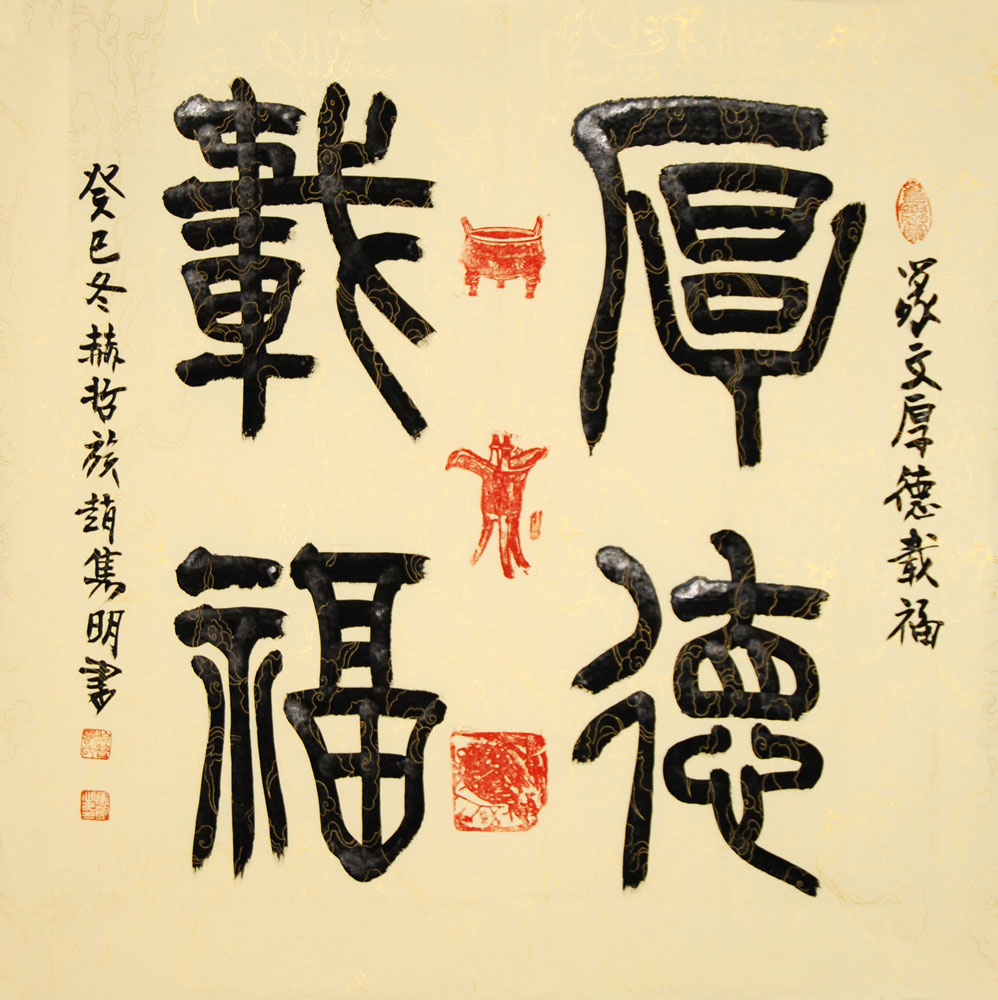 篆文厚德載福
厚德
載福
癸巳冬赫哲族趙集明書